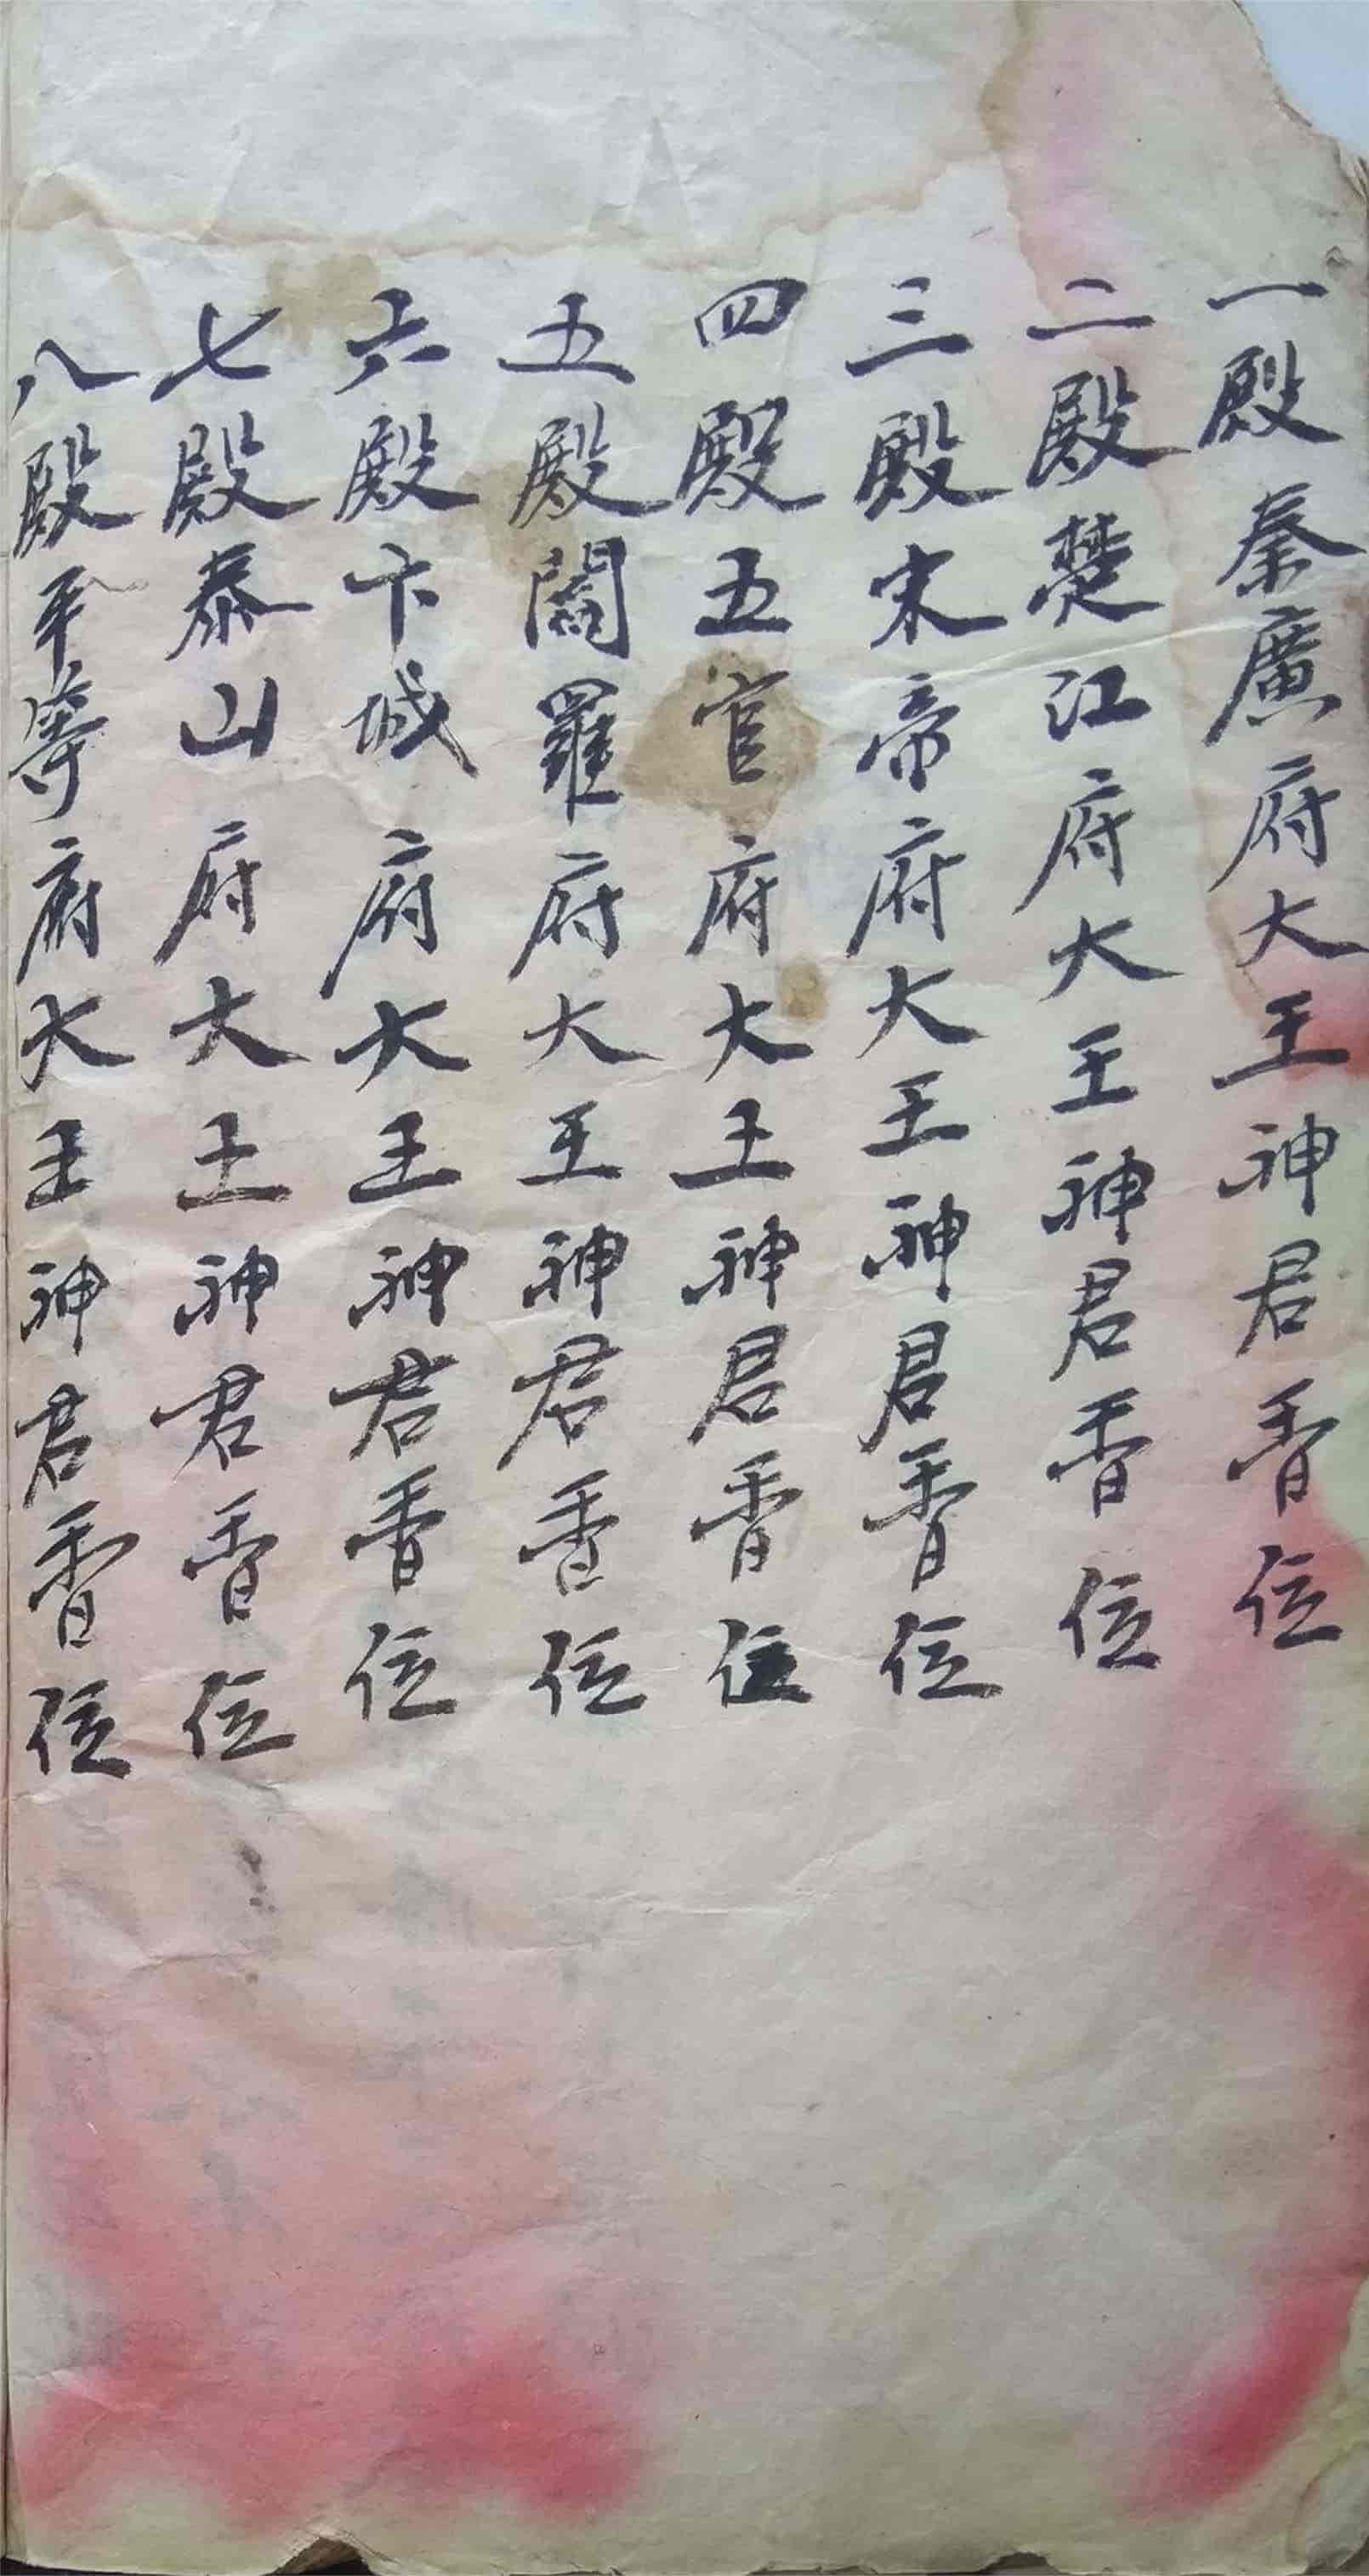 一殿秦廣府大王神君香位
二殿楚江府大王神君香位
三殿宋帝府大王神君香位
四殿五官府大王神君香位
五殿閻羅府大王神君香位
六殿卞城府大王神君香位
七殿泰山府大王神君香位
八殿平等府大王神君香位